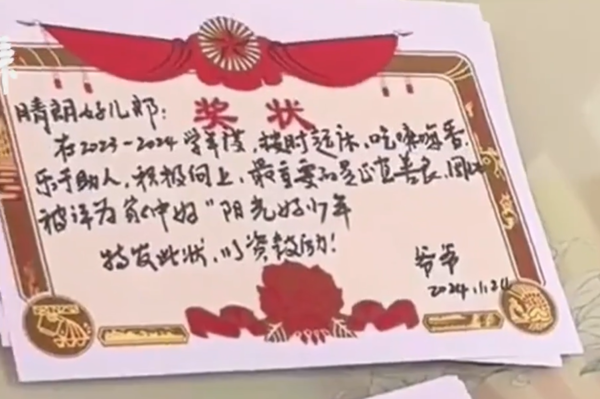 奖状
晴朗好儿郎:
在2023-2024学年度,按时起床,吃嘛嘛香,
乐于助人,积极向上,最重要的是正直善良,因此
被评为家中好"阳光好少年
特发此状,以资鼓励!
爷爷
2024.1.24